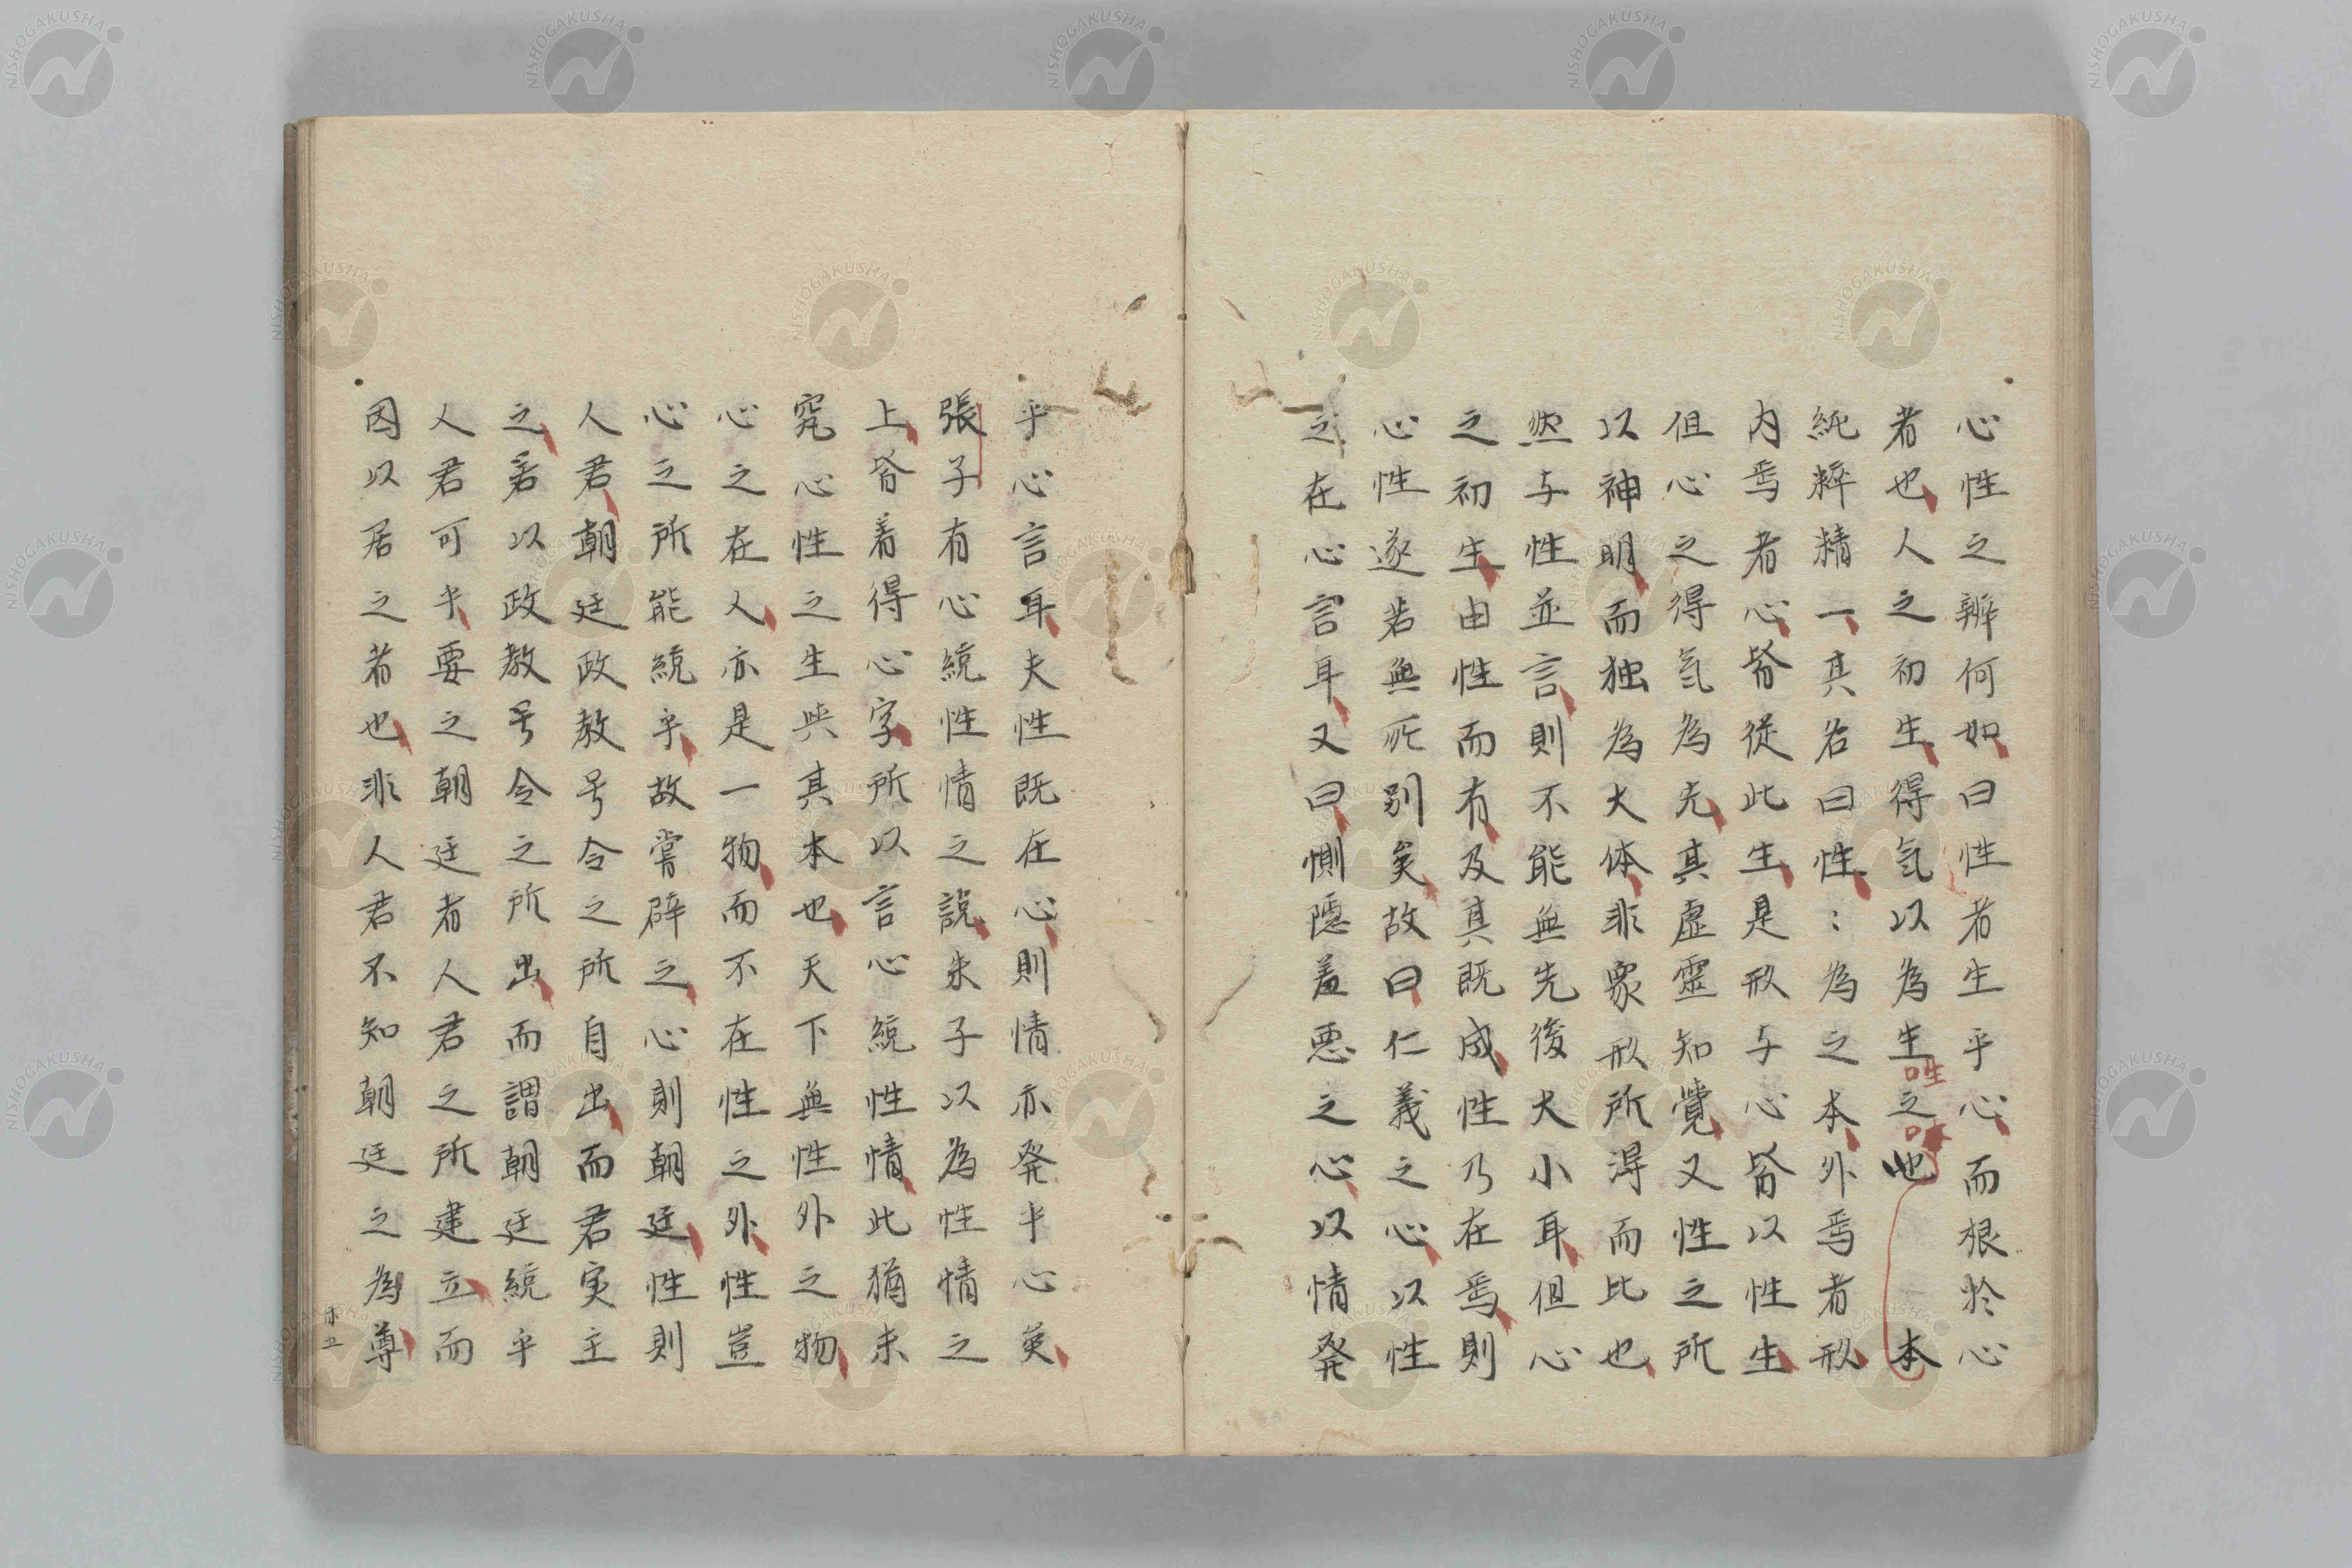 心性之辨何如曰性者生乎心而根於心
者也人之初生得気以為生之也本
純粹精一其名曰性：為之本外焉者形
内焉者心皆従此生是形与心皆以性生
但心之得気為先其虚霊知覚又性之所
以神明而独為大体非衆形所得而比也
然与性並言則不能無先後大小耳但心
之初生由性而有及其既成性乃在焉則
心性遂若無所別矣故曰仁義之心以性
之在心言耳又曰惻隠羞悪之心以情発
乎心言耳夫性既在心則情亦発乎心矣
張子有心統性情之説朱子以為性情之
上皆着得心字所以言心統性情此猶未
究心性之生与其本也天下無性外之物
心之在人亦是一物而不在性之外性豈
心之所能統乎故嘗辟之心則朝廷性則
人君朝廷政教号令之所自出而君実主
之若以政教号令之所出而謂朝廷統乎
人君可乎要之朝廷者人君之所建立而
因以居之者也非人君不知朝廷之為尊